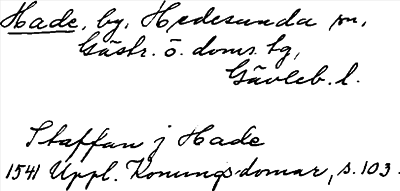 Hade, by, Hedesunda sn,
Gästr. ö. doms. tg,
Gävleb. l.
Staffan j Hade
1541 Uppl. Konungsdomar, s. 103.